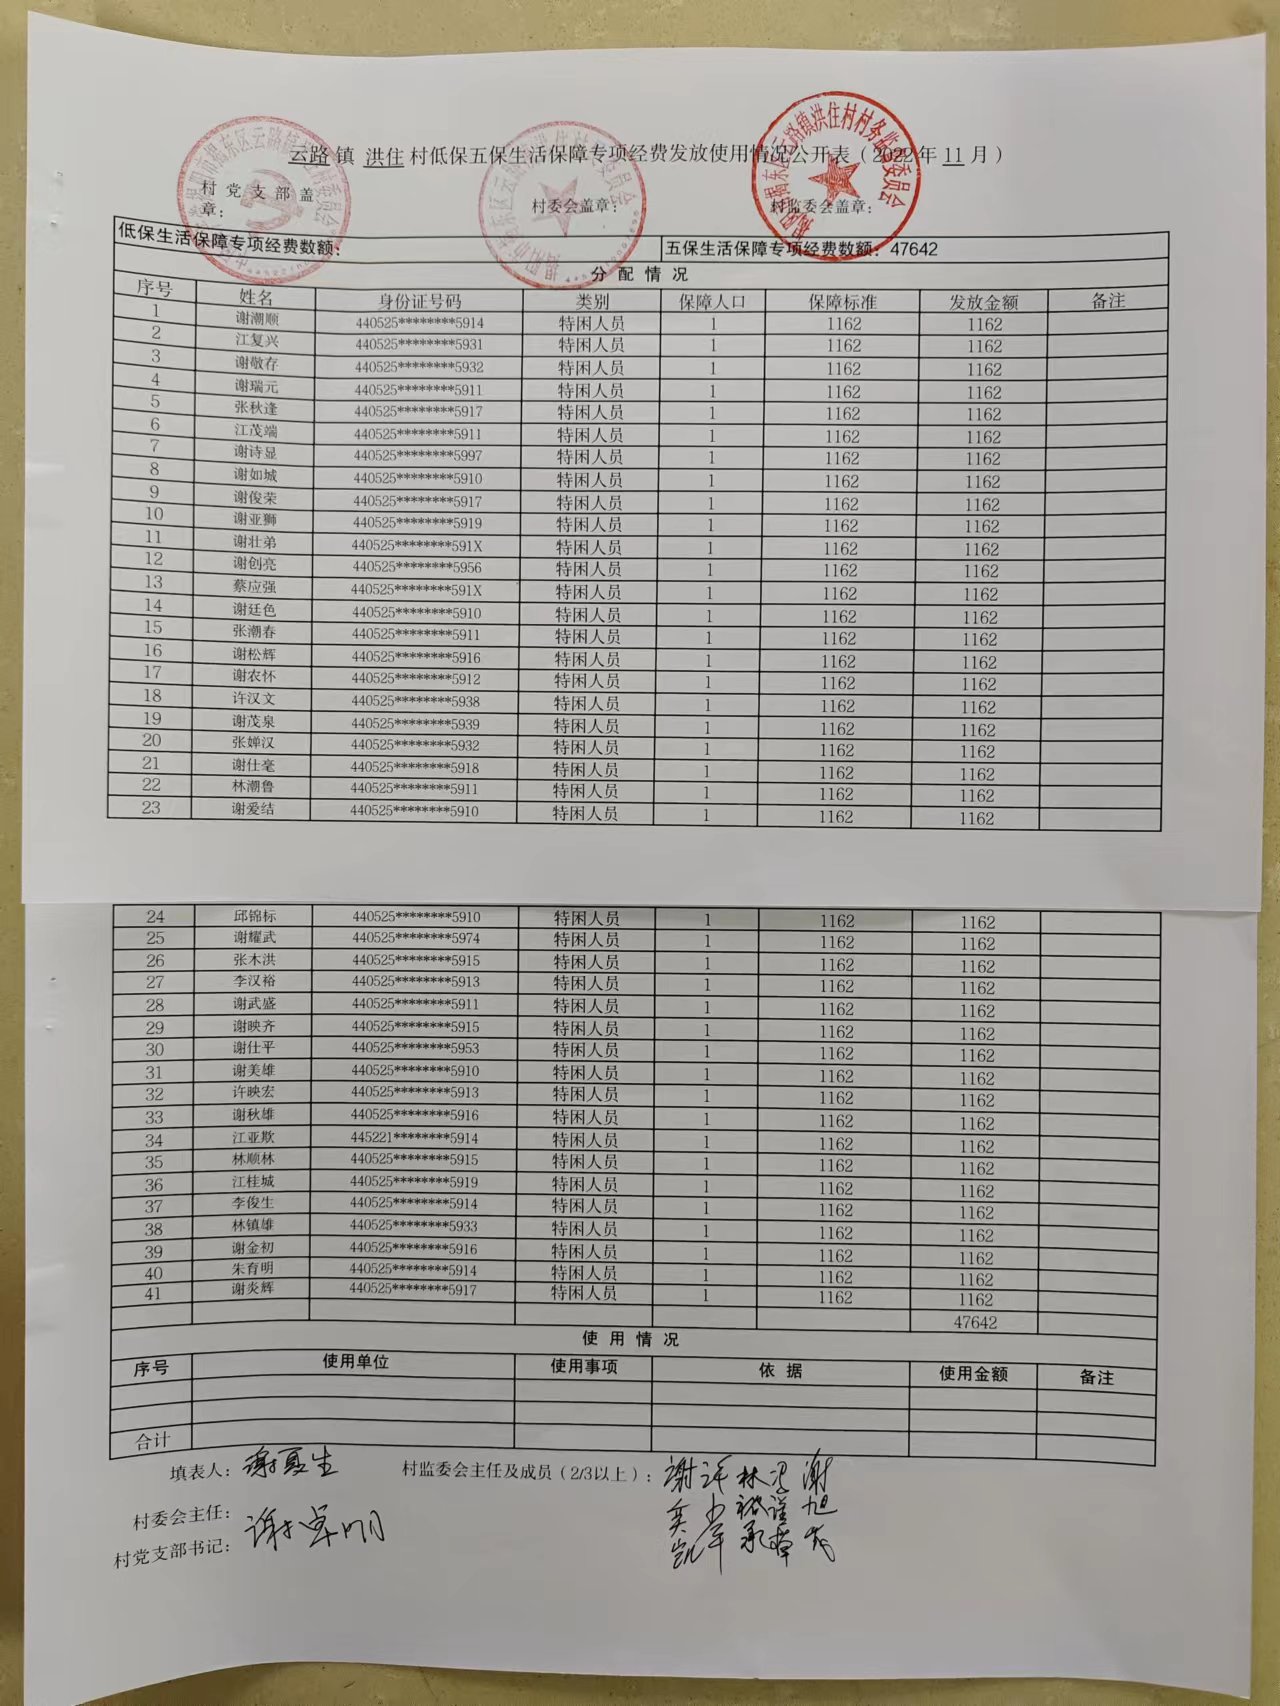 云路 镇 洪住 村低保五保生活保障专项经费发放使用情况公开表（2022年 11 月）
村党支部盖章： 村委会盖章： 村监委会盖章：
低保生活保障专项经费数额： 五保生活保障专项经费数额：47642
分配情况
序号 姓名 身份证号码 类别 保障人口 保障标准 发放金额 备注
1 谢潮顺 440525********5914 特困人员 1 1162 1162
2 江复兴 440525********5931 特困人员 1 1162 1162
3 谢敬存 440525********5932 特困人员 1 1162 1162
4 谢瑞元 440525********5911 特困人员 1 1162 1162
5 张秋逢 440525********5917 特困人员 1 1162 1162
6 江茂端 440525********5911 特困人员 1 1162 1162
7 谢诗显 440525********5997 特困人员 1 1162 1162
8 谢如城 440525********5910 特困人员 1 1162 1162
9 谢俊荣 440525********5917 特困人员 1 1162 1162
10 谢亚狮 440525********5919 特困人员 1 1162 1162
11 谢壮弟 440525********591X 特困人员 1 1162 1162
12 谢创亮 440525********5956 特困人员 1 1162 1162
13 蔡应强 440525********591X 特困人员 1 1162 1162
14 谢廷色 440525********5910 特困人员 1 1162 1162
15 张潮春 440525********5911 特困人员 1 1162 1162
16 谢松辉 440525********5916 特困人员 1 1162 1162
17 谢农怀 440525********5912 特困人员 1 1162 1162
18 许汉文 440525********5938 特困人员 1 1162 1162
19 谢茂泉 440525********5939 特困人员 1 1162 1162
20 张婵汉 440525********5932 特困人员 1 1162 1162
21 谢仕毫 440525********5918 特困人员 1 1162 1162
22 林潮鲁 440525********5911 特困人员 1 1162 1162
23 谢爱结 440525********5910 特困人员 1 1162 1162
24 邱锦标 440525********5910 特困人员 1 1162 1162
25 谢耀武 440525********5974 特困人员 1 1162 1162
26 张木洪 440525********5915 特困人员 1 1162 1162
27 李汉裕 440525********5913 特困人员 1 1162 1162
28 谢武盛 440525********5911 特困人员 1 1162 1162
29 谢映齐 440525********5915 特困人员 1 1162 1162
30 谢仕平 440525********5953 特困人员 1 1162 1162
31 谢美雄 440525********5910 特困人员 1 1162 1162
32 许映宏 440525********5913 特困人员 1 1162 1162
33 谢秋雄 440525********5916 特困人员 1 1162 1162
34 江亚欺 445221********5914 特困人员 1 1162 1162
35 林顺林 440525********5915 特困人员 1 1162 1162
36 江桂城 440525********5919 特困人员 1 1162 1162
37 李俊生 440525********5914 特困人员 1 1162 1162
38 林镇雄 440525********5933 特困人员 1 1162 1162
39 谢金初 440525********5916 特困人员 1 1162 1162
40 朱育明 440525********5914 特困人员 1 1162 1162
41 谢炎辉 440525********5917 特困人员 1 1162 1162
47642
使用情况
序号 使用单位 使用事项 依据 使用金额 备注
合计
填表人：谢夏生 村监委会主任及成员（2/3以上）：
村委会主任：
村党支部书记： 谢卓明